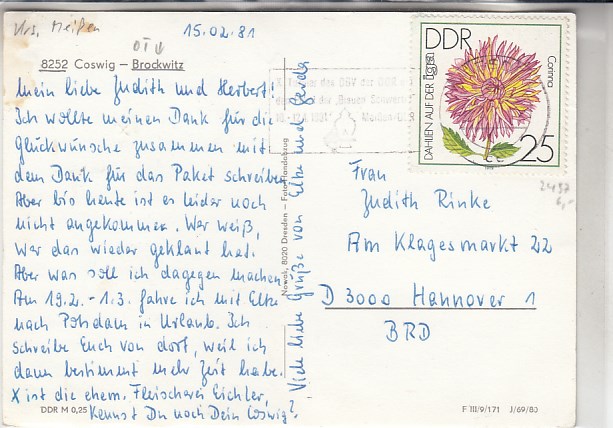 Krs. Meißen
15.02.81
8252 Coswig - Brockwitz
Mein liebe Judith und Herbert!
Ich wollte meinen Dank für die
Glückwünsche zusammen mit
dem Dank für das Paket schreiben
Aber bis heute ist es leider noch
nicht angekommen. Wer weiß,
wer das wieder geklaut hat.
Aber was soll ich dagegen machen
Am 19.2. - 1.3. fahre ich mit Elke
nach Potsdam in Urlaub. Ich
schreibe Euch von dort, weil ich
dann bestimmt mehr Zeit habe.
X ist die ehem. Fleischerei Eichler,
Kennst Du noch Dein Coswig?
Viele liebe Grüße von Elke und Gerda
DDR M 0,25
Nowak, 8020 Dresden - Foto-Handabzug
DDR
DAHLIEN AUF DER
Corinna
25
der DDR
"Blauen Schwerter"
Meißen
Frau
Judith Rinke
Am Klagesmarkt 22
D 3000 Hannover 1
BRD
F III/9/171 J/69/80